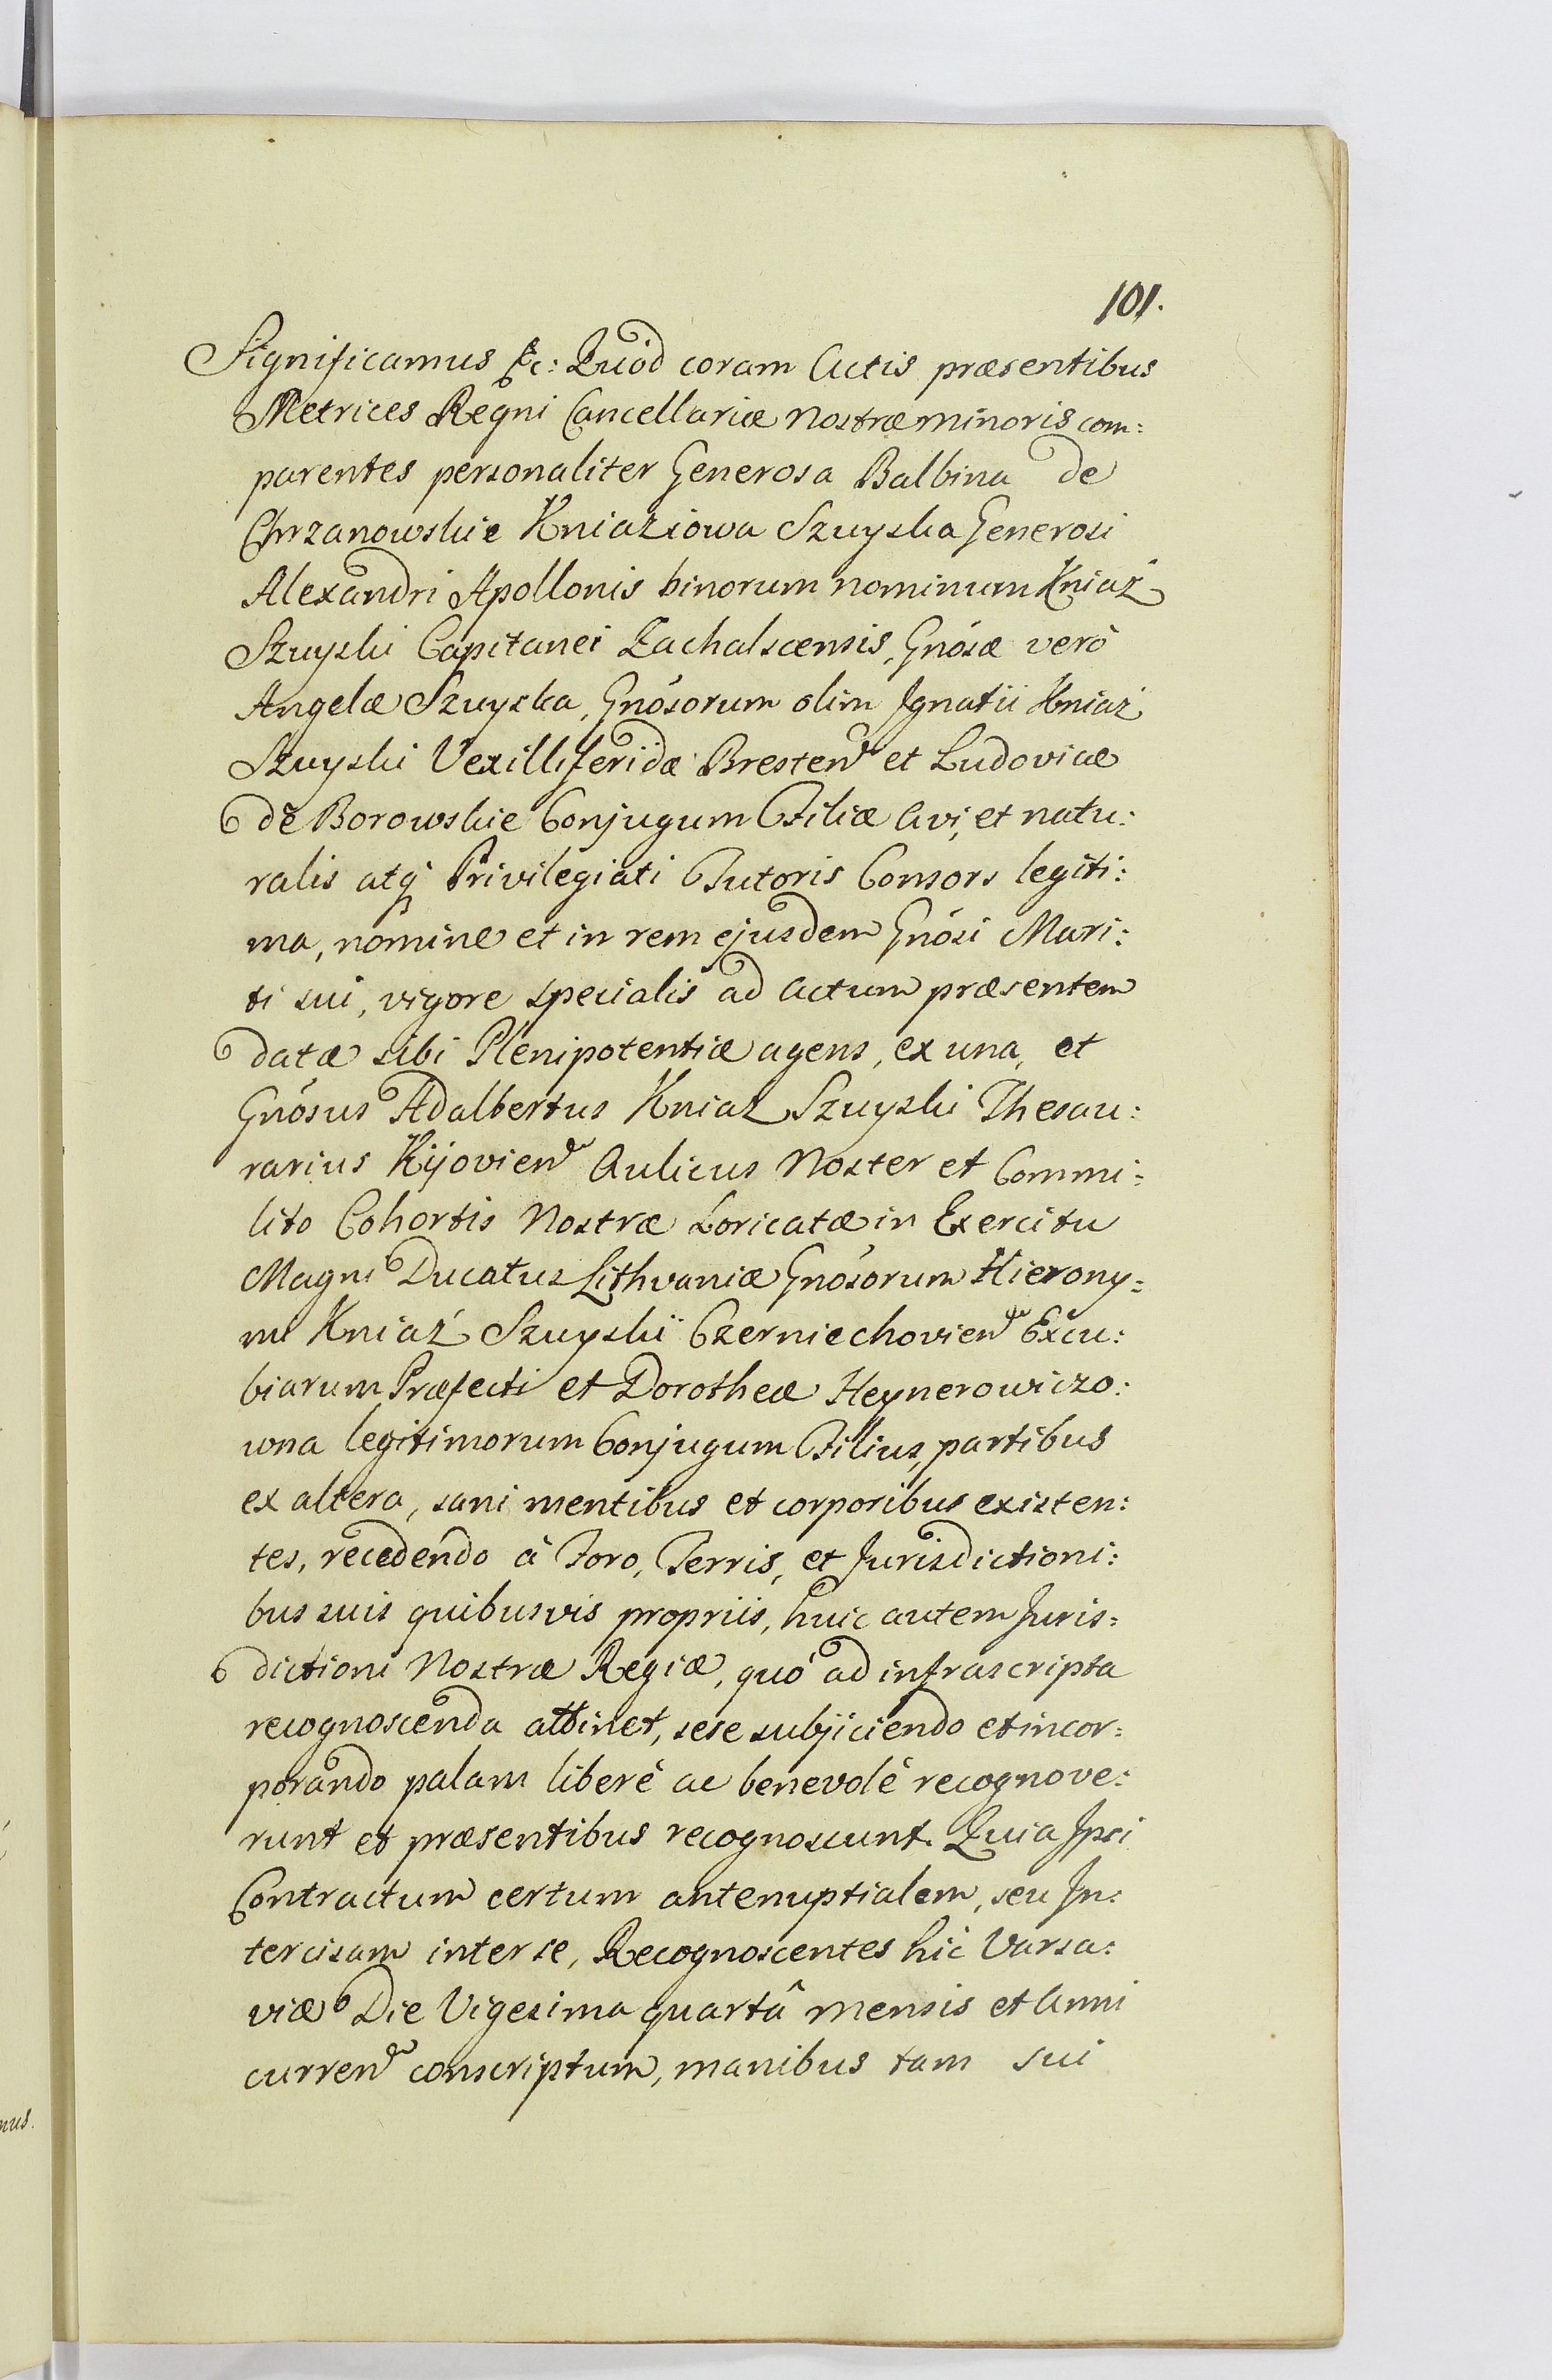 101.
Significamus &c: Quòd coram Actis præsentibus
Metrices Regni Cancellariæ nostræ minoris com:
parentes personaliter Generosa Balbina de
Chrzanowskie Kniaziowa Szuyska Generosi
Alexandri Apollonis binorum nominum Kniaź
Szuyski Capitanei Zachalscensis, Gnósæ verò
Angelæ Szuyska, Gnósorum olim Ignatii Kniaź
Szuyski Vexilliferidæ Bresten et Ludovicæ
de Borowskie Conjugum Filiæ Avi, et natu:
ralis atq Privilegiati Tutoris Consors legiti:
ma, nomine et in rem ejusdem Gnósi Mari:
ti sui, vigore specialis ad Actum præsentem
datæ sibi Plenipotentiæ agens, ex una, et
Gnósus Adalbertus Kniaź Szuyski Thesau:
rarius Kijovien Aulicus Noster et Commi:
lito Cohortis Nostræ Loricatæ in Exercitu
Magni Ducatus Lithvaniæ Gnósorum Hierony:
mi Kniaź Szuyski Czerniechovien Excu:
biarum Præfecti et Dorotheæ Heynerowiczo:
wna legitimorum Conjugum Filius, partibus
ex altera, sani mentibus et corporibus existen:
tes, recedendo à Foro, Terris, et Jurisdictioni:
bus suis quibusvis propriis, huic autem Juris:
dictioni Nostræ Regiæ, quó ad infrascripta
recognoscenda attinet, sese subjiciendo et incor:
porando palam liberè ac benevolè recognove:
runt et præsentibus recognoscunt. Quia Ipsi
Contractum certum antenuptialem, seu In:
tercisam inter se, Recognoscentes hic Varsa:
viæ Die Vigesima quartâ mensis et Anni
curren conscriptum, manibus tam sui
mus.